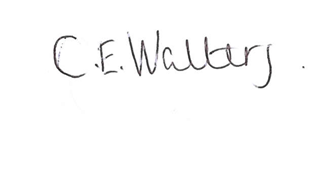 C.E. Walters.